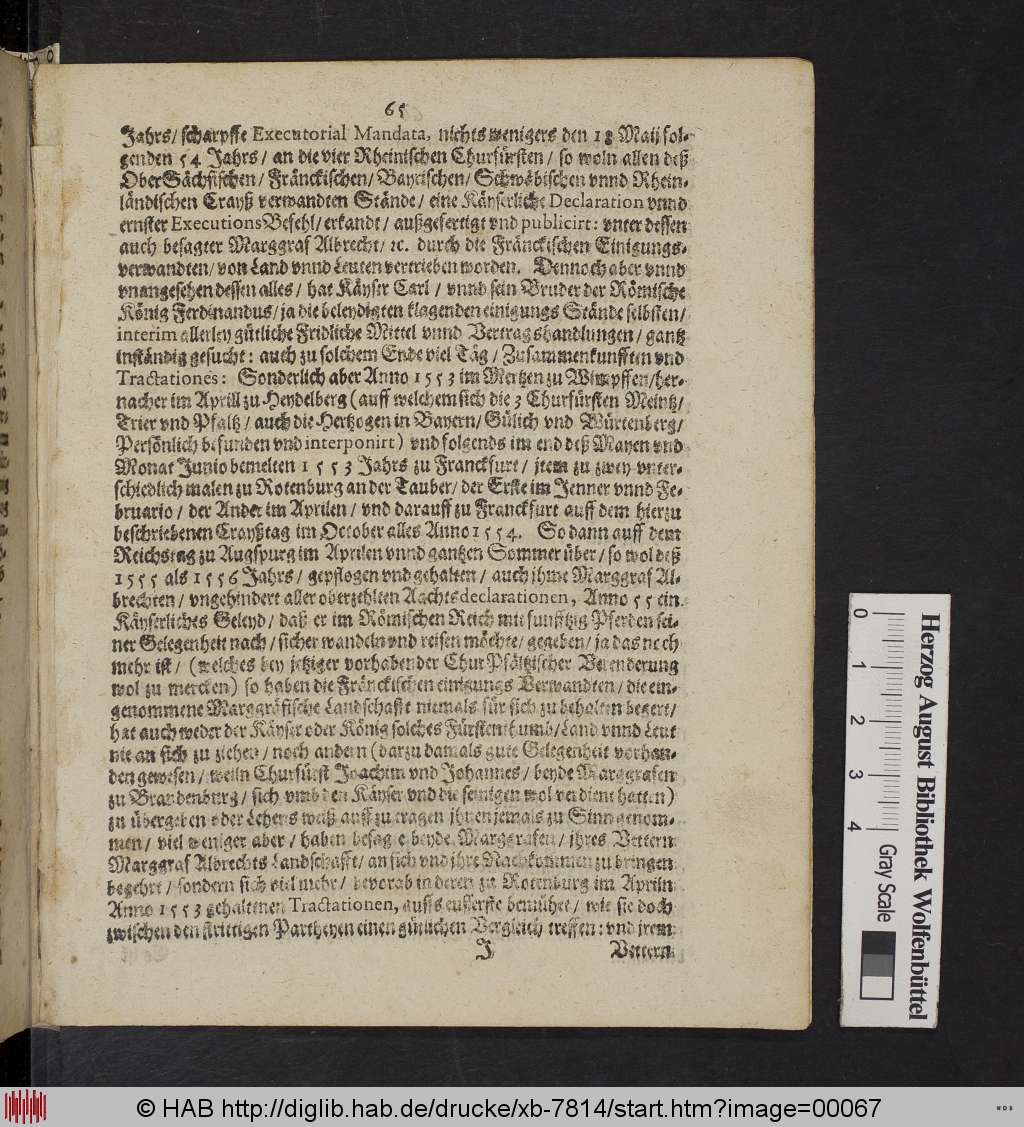 65
Jahrs/ scharpffe Executorial Mandata, nichts wenigers den 18 Maij fol-
genden 54 Jahrs / an die vier Rheinischen Churfürsten / so woln allen deß
OberSächsischen / Fränckischen / Bayrischen / Schwäbischen vnnd Rhein-
ländischen Crayß verwandten Stände / eine Käyserliche Declaration vnnd
ernster ExecutionsBefehl / erkandt / außgefertigt vnd publicirt: vnter dessen
auch besagter Marggraf Albrecht / ꝛc. durch die Fränckischen Einigungs-
verwandten / von Land vnnd Leuten vertrieben worden. Dennoch aber vnnd
vnangesehen dessen alles / hat Käyser Carl / vnnd sein Bruder der Römische
König Ferdinandus / ja die beleydigten klagenden einigungs Stände selbsten /
interim allerley gütliche Fridliche Mittel vnnd Vertragshandlungen / gantz
inständig gesucht: auch zu solchem Ende viel Täg / Zusammenkunfften vnd
Tractationes: Sonderlich aber Anno 1553 im Mertzen zu Wimpffen / her-
nacher im Aprill zu Heydelberg (auff welchem sich die 3 Churfürsten Meintz /
Trier vnd Pfaltz / auch die Hertzogen in Bayern / Gülich vnd Würtenberg /
Persönlich befunden vnd interponirt) vnd folgends im end deß Mayen vnd
Monat Junio bemelten 1553 Jahrs zu Franckfurt / jtem zu zwey vnter-
schiedlich malen zu Rotenburg an der Tauber / der Erste im Jenner vnnd Fe-
bruario / der Ander im Aprilen / vnd darauff zu Franckfurt auff dem hierzu
beschriebenen Crayßtag im October alles Anno 1554. So dann auff dem
Reichstag zu Augspurg im Aprilen vnnd gantzen Sommer über / so wol deß
1555 als 1556 Jahrs / gepflogen vnd gehalten / auch jhme Marggraf Al-
brechten / vngehindert aller oberzehlten Aachtsdeclarationen, Anno 55 ein
Käyserliches Geleyd / daß er im Römischen Reich mit funfftzig Pferden sei-
ner Gelegenheit nach / sicher wandeln vnd reisen möchte / gegeben / ja das noch
mehr ist / (welches bey jetziger vorhabender ChurPfältzischer Verenderung
wol zu mercken) so haben die Fränckischen einigungs Verwandten / die ein-
genommene Marggräfische Landschafft niemals für sich zu behalten begert /
hat auch weder der Käyser oder König solches Fürstenthumb / Land vnnd Leut
nie an sich zu ziehen / noch andern (darzu damals gute Gelegenheit vorhan-
den gewesen / weiln Churfürst Joachim vnd Johannes / beyde Marggrafen
zu Brandenburg / sich vmb den Käyser vnd die seinigen wol verdient hatten)
zu übergeben oder Lehens weiß auff zu tragen jhnen jemals zu Sinn genom-
men / viel weniger aber / haben besagte beyde Marggrafen / jhres Vettern
Marggraf Albrechts Landschafft / an sich vnd jhre Nachkommen zu bringen
begehrt / sondern sich viel mehr / bevorab in deren zu Rotenburg im Apriln
Anno 1553 gehaltenen Tractationen, auffs eusserste bemühet / wie sie doch
zwischen den strittigen Partheyen einen gütlichen Vergleich treffen: vnd jrem
J Vettern
Herzog August Bibliothek Wolfenbüttel
0 1 2 3 4 Gray Scale
© HAB http://diglib.hab.de/drucke/xb-7814/start.htm?image=00067